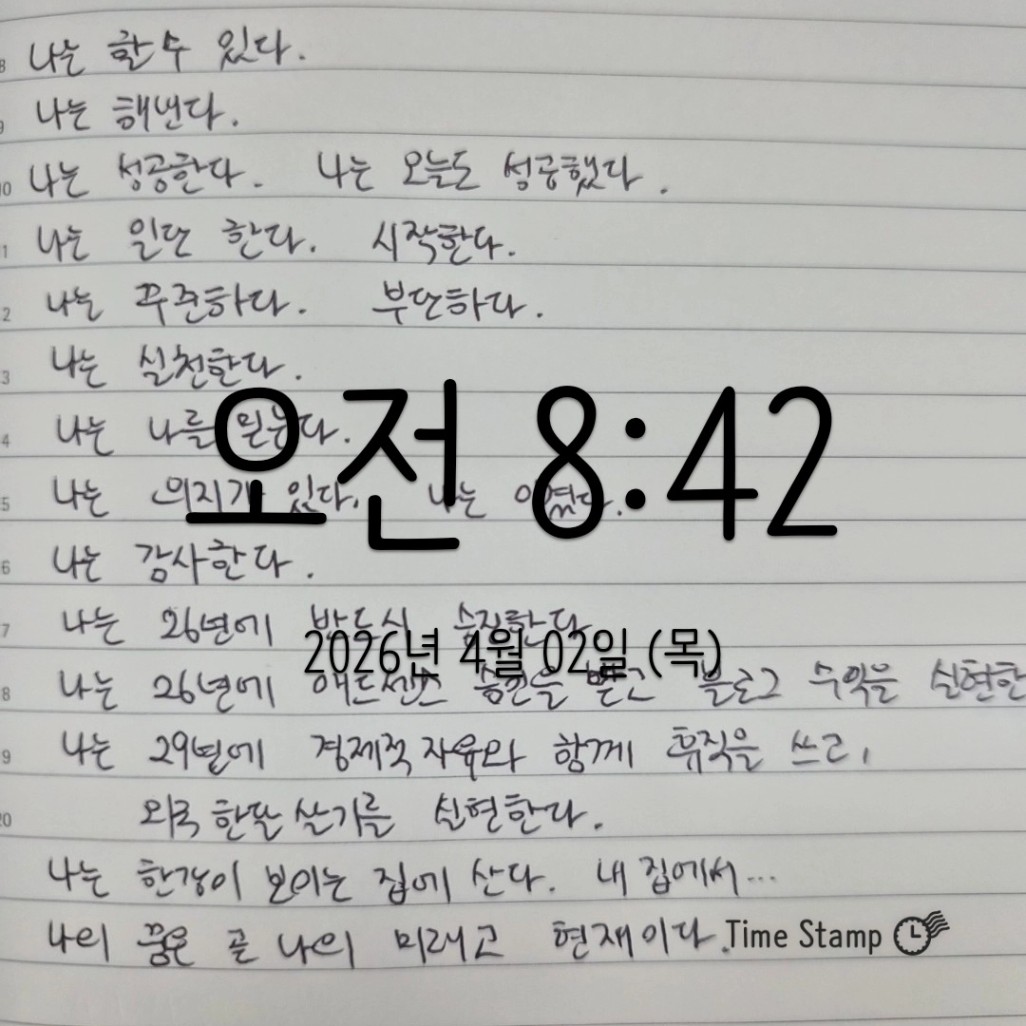 8 나는 할 수 있다.
9 나는 해낸다.
10 나는 성공한다. 나는 오늘도 성공했다.
1 나는 일단 한다. 시작한다.
2 나는 꾸준하다. 부단하다.
3 나는 실천한다.
4 나는 나를 믿는다.
5 나는 의지가 있다. 나는
6 나는 감사한다.
7 나는 26년에 반드시 승진한다
8 나는 26년에 애드센스 승인을 받고 블로그 수익을 실현한
9 나는 29년에 경제적 자유와 함께 휴직을 쓰고,
20 외국 한달 살기를 실현한다.
나는 한강이 보이는 집에 산다. 내 집에서...
나의 꿈은 곧 나의 미래고 현재이다.
오전 8:42
2026년 4월 02일 (목)
Time Stamp